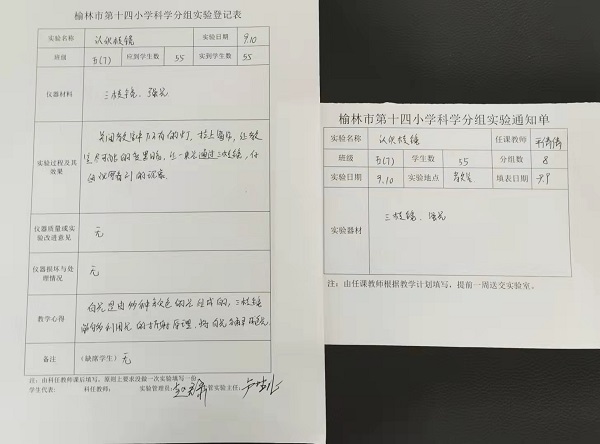 榆林市第十四小学科学分组实验登记表
实验名称 认识棱镜 实验日期 9.10
班级 五(7) 应到学生数 55 实到学生数 55
仪器材料 三棱镜、强光
实验过程及其效果
关闭教室中所有的灯,拉上窗帘,让教
室尽可能的变黑暗,让一束光通过三棱镜,仔
仪器质量或实验改进意见 无
仪器损坏与处理情况 无
教学心得
白光是由多种颜色的光组成的,三棱镜
能够利用光的折射原理,将白光
备注 (缺席学生) 无
注:由科任教师课后填写,原则上要求没做一次实验填写一份
学生代表: 科任教师: 实验管理员: 管实验主任:
榆林市第十四小学科学分组实验通知单
实验名称 认识棱镜 任课教师
班级 五(7) 学生数 55 分组数 8
实验日期 9.10 实验地点 教室 填表日期
实验器材 三棱镜、强光
注:由任课教师根据教学计划填写,提前一周送交实验室。